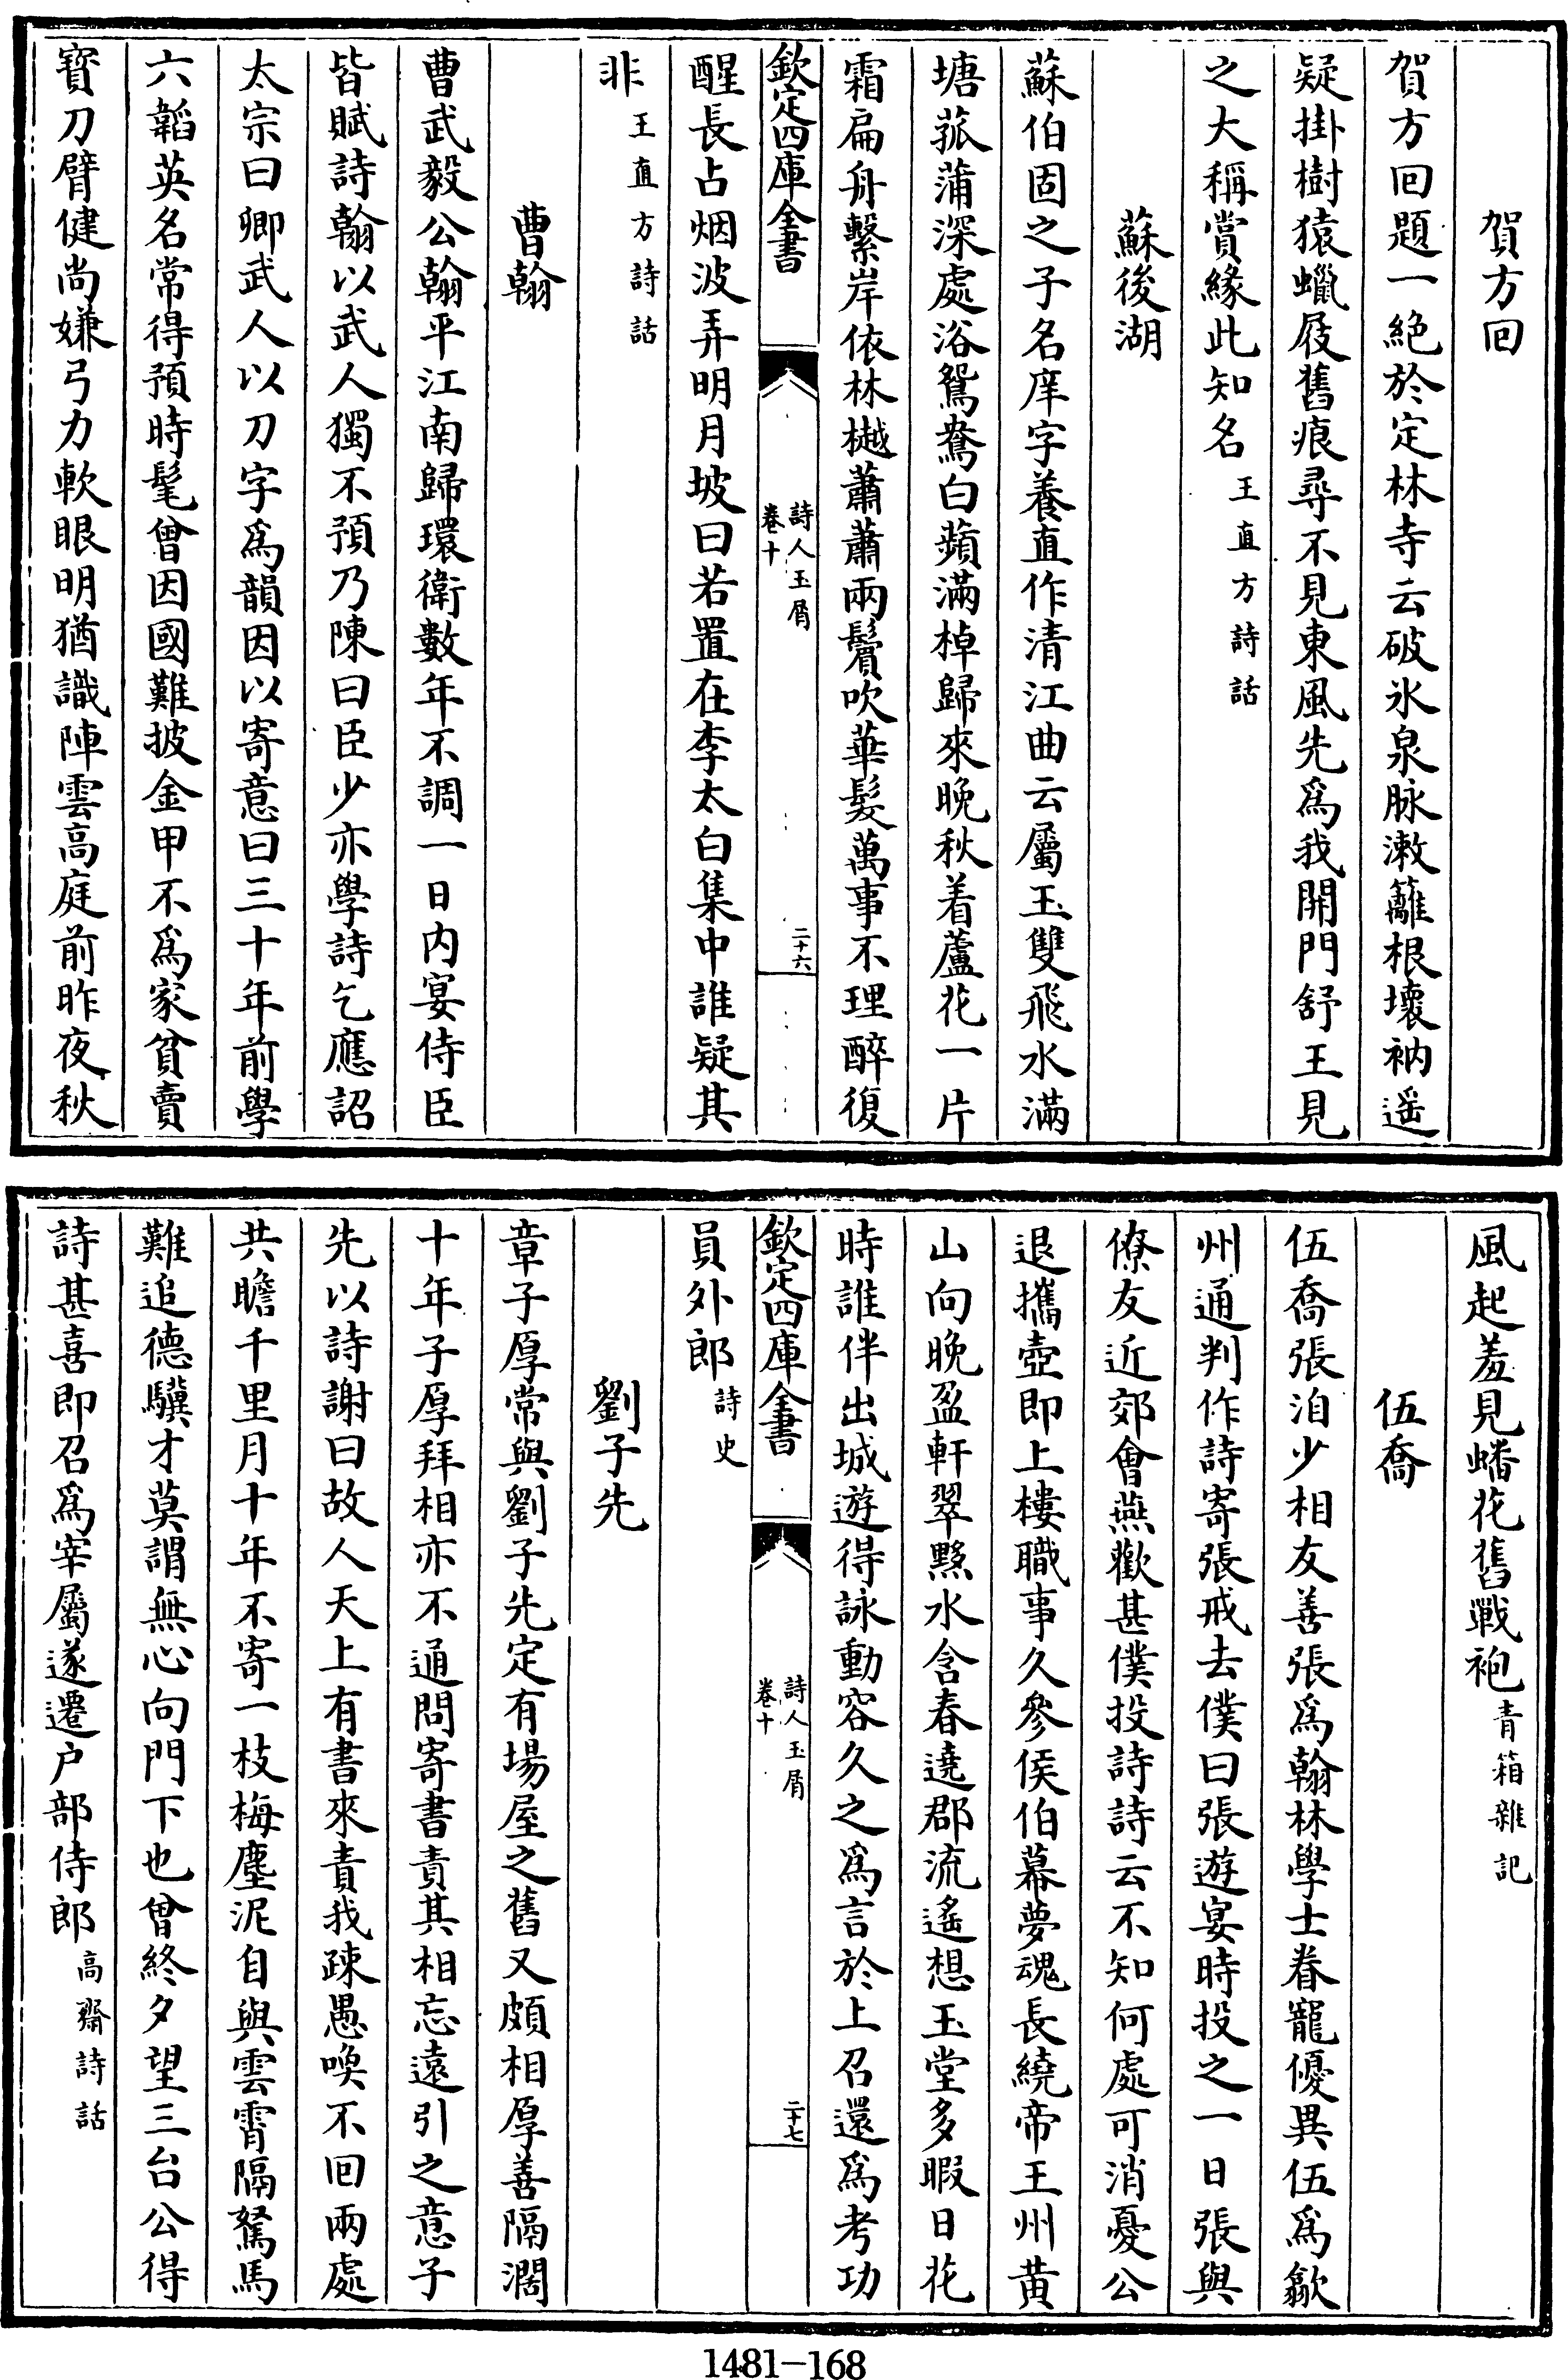 賀方回
賀方回題一絶於定林寺云破氷泉脉漱籬根壞衲遥
疑掛樹猿蠟屐舊痕尋不見東風先為我開門舒王見
之大稱賞緣此知名王直方詩話
蘇後湖
蘇伯固之子名庠字養直作清江曲云屬玉雙飛水滿
塘菰蒲深處浴鴛鴦白蘋滿棹歸來晚秋着蘆花一片
霜扁舟繫岸依林樾蕭蕭兩鬢吹華髮萬事不理醉復
欽定四庫全書
詩人玉屑
卷十
二十六
醒長占烟波弄明月坡曰若置在李太白集中誰疑其
非王直方詩話
曹翰
曹武毅公翰平江南歸環衛數年不調一日内宴侍臣
皆賦詩翰以武人獨不預乃陳曰臣少亦學詩乞應詔
太宗曰卿武人以刀字為韻因以寄意曰三十年前學
六韜英名常得預時髦曾因國難披金甲不為家貧賣
寳刀臂健尚嫌弓力軟眼明猶識陣雲高庭前昨夜秋
風起羞見蟠花舊戰袍青箱雜記
伍喬
伍喬張洎少相友善張為翰林學士眷寵優異伍為歙
州通判作詩寄張戒去僕曰張遊宴時投之一日張與
僚友近郊會燕歡甚僕投詩詩云不知何處可消憂公
退攜壺即上樓職事久參侯伯幕夢魂長繞帝王州黄
山向晚盈軒翠黟水含春遶郡流遙想玉堂多暇日花
時誰伴出城遊得詠動容久之為言於上召還為考功
欽定四庫全書
詩人玉屑
卷十
二十七
員外郎詩史
劉子先
章子厚常與劉子先定有場屋之舊又頗相厚善隔濶
十年子厚拜相亦不通問寄書責其相忘遠引之意子
先以詩謝曰故人天上有書來責我疎愚喚不回兩處
共瞻千里月十年不寄一枝梅塵泥自與雲霄隔駑馬
難追德驥才莫謂無心向門下也曾終夕望三台公得
詩甚喜即召為宰屬遂遷户部侍郎高齋詩話
1481-168